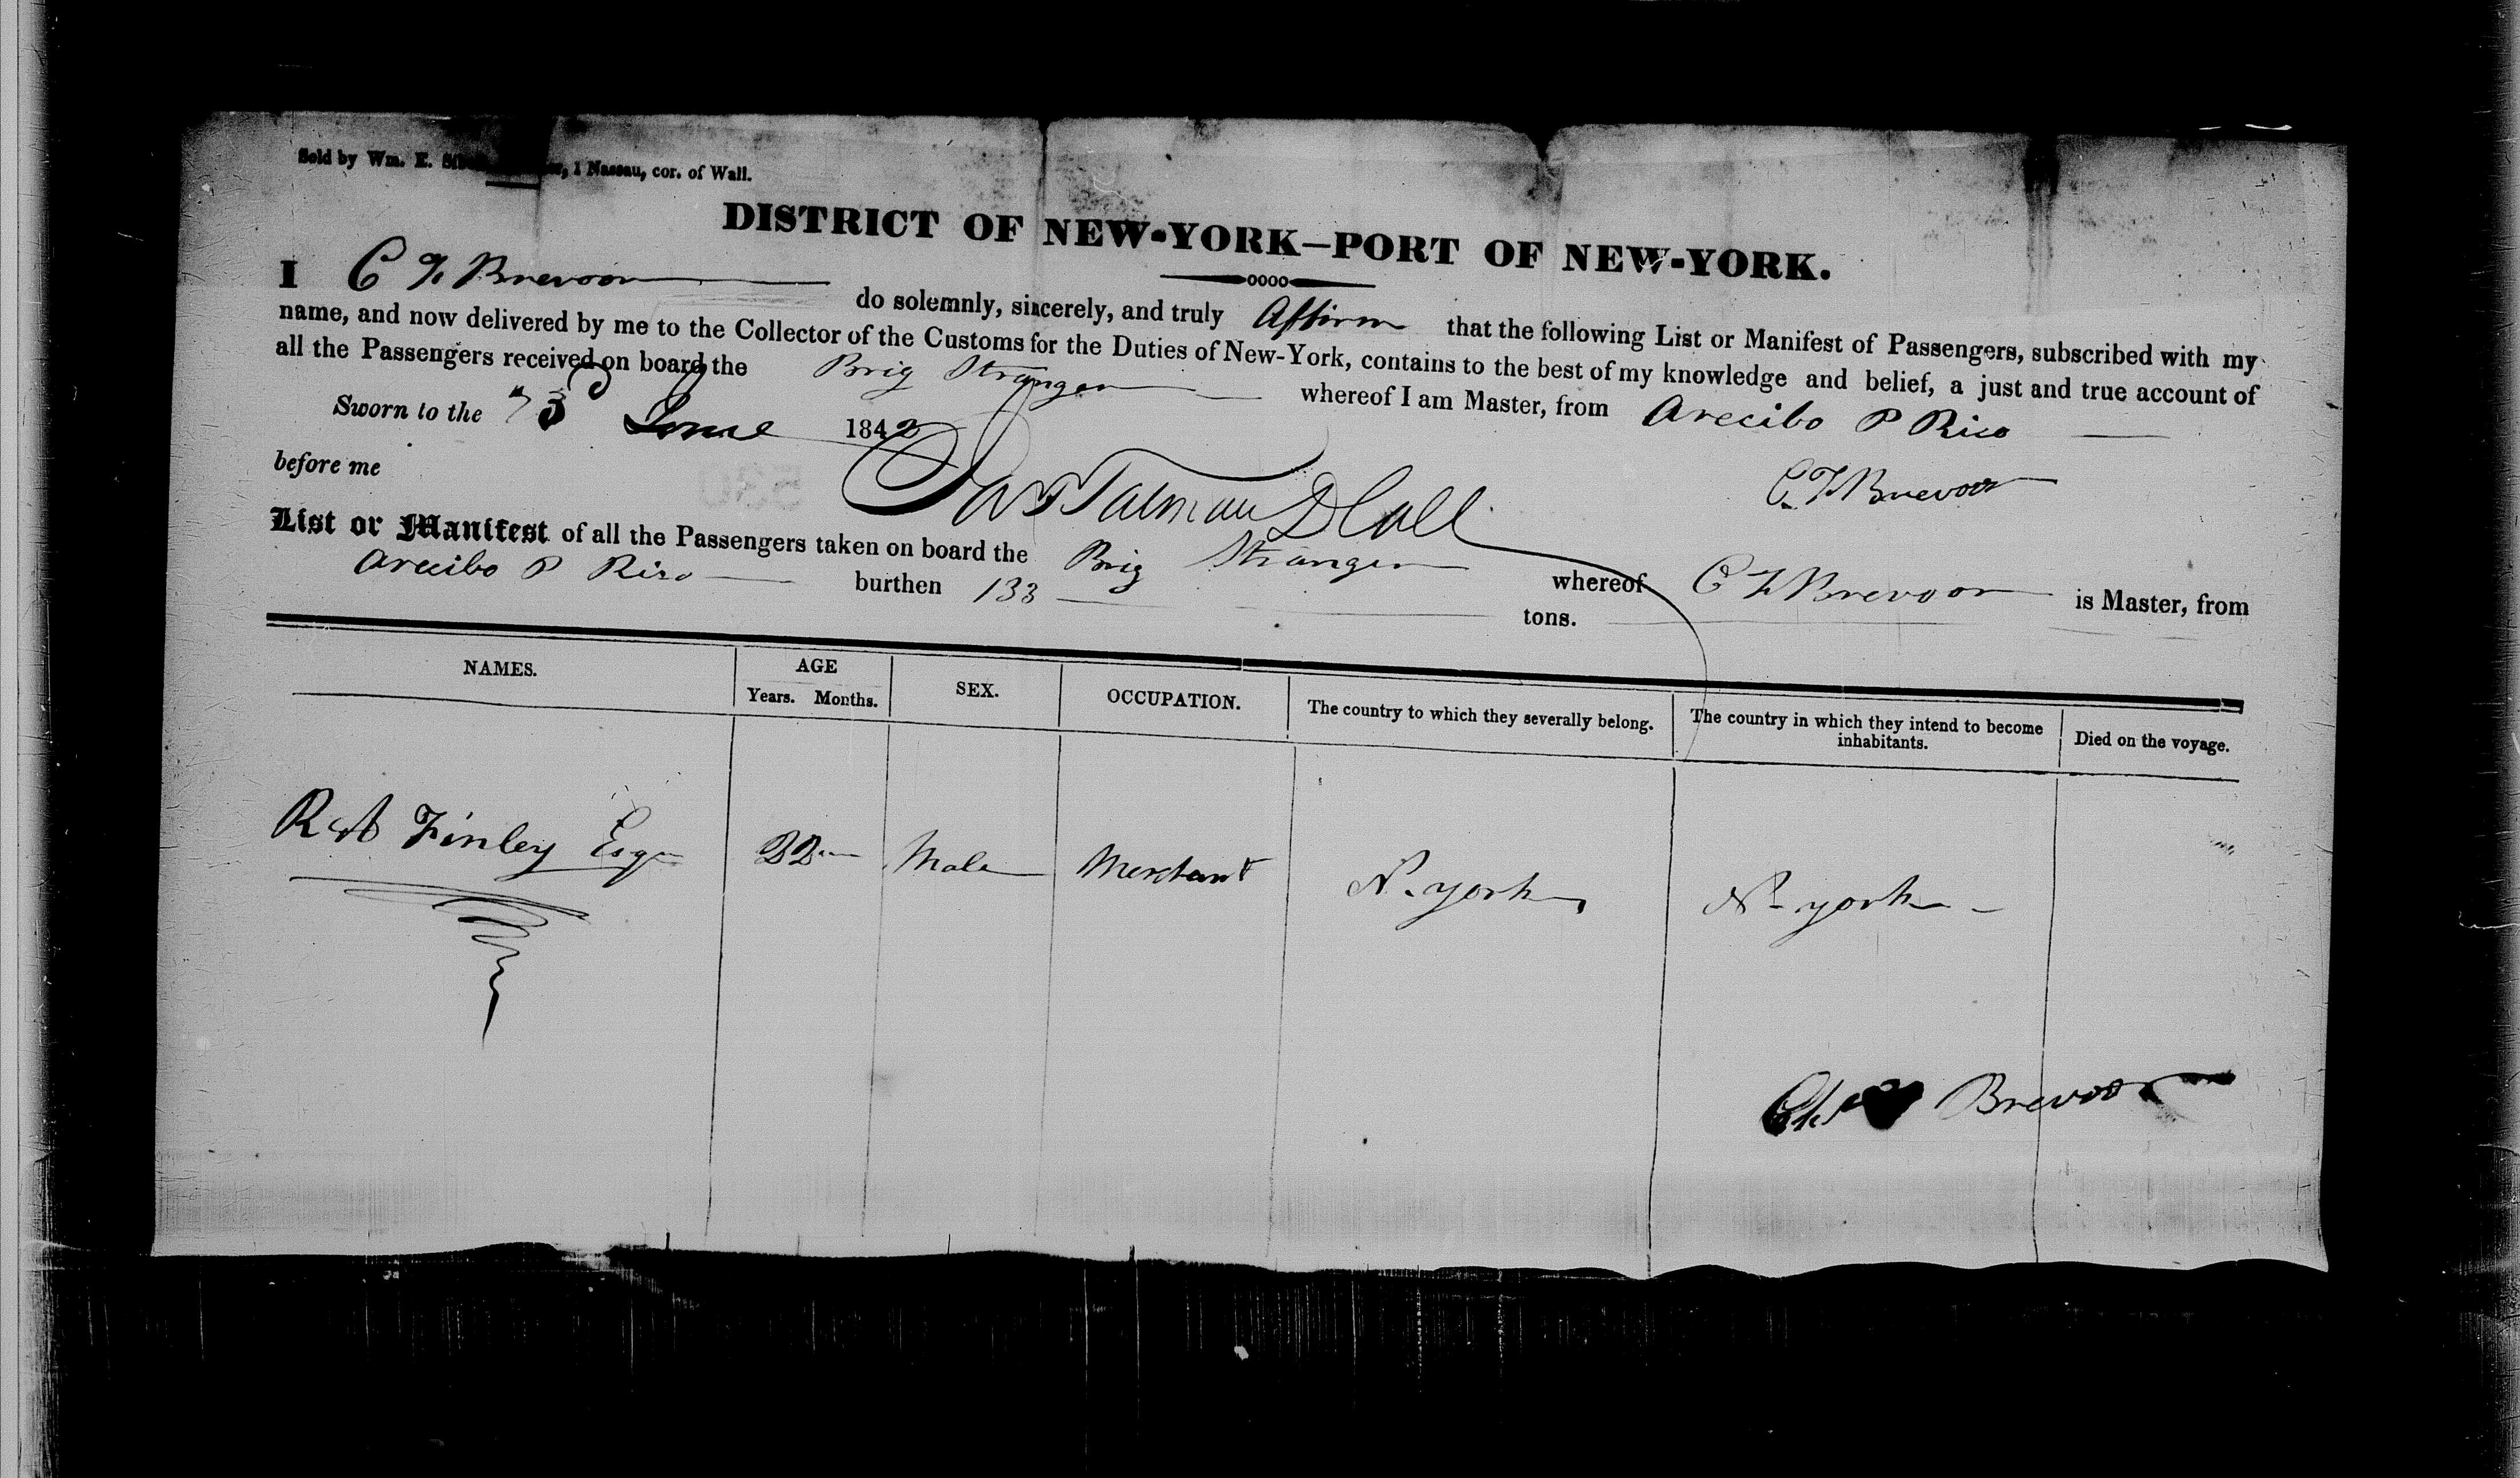 Sold by Wm. E. 1 Nassau, cor. of Wall.
DISTRICT OF NEW-YORK—PORT OF NEW-YORK.
I C F Brevoor do solemnly, sincerely, and truly Affirm that the following List or Manifest of Passengers, subscribed with my
name, and now delivered by me to the Collector of the Customs for the Duties of New-York, contains to the best of my knowledge and belief, a just and true account of
all the Passengers received on board the Brig Stranger whereof I am Master, from Arecibo P Rico
Sworn to the June 1842
before me C F Brevoor
Talman D Coll
List or Manifest of all the Passengers taken on board the Brig Stranger whereof C F Brevoor is Master, from
Arecibo P Rico burthen 133 tons.
NAMES. AGE Years. Months. SEX. OCCUPATION. The country to which they severally belong. The country in which they intend to become inhabitants. Died on the voyage.
R A Finley Esqr 22 Male Merchant N. york N. york
Brevoor